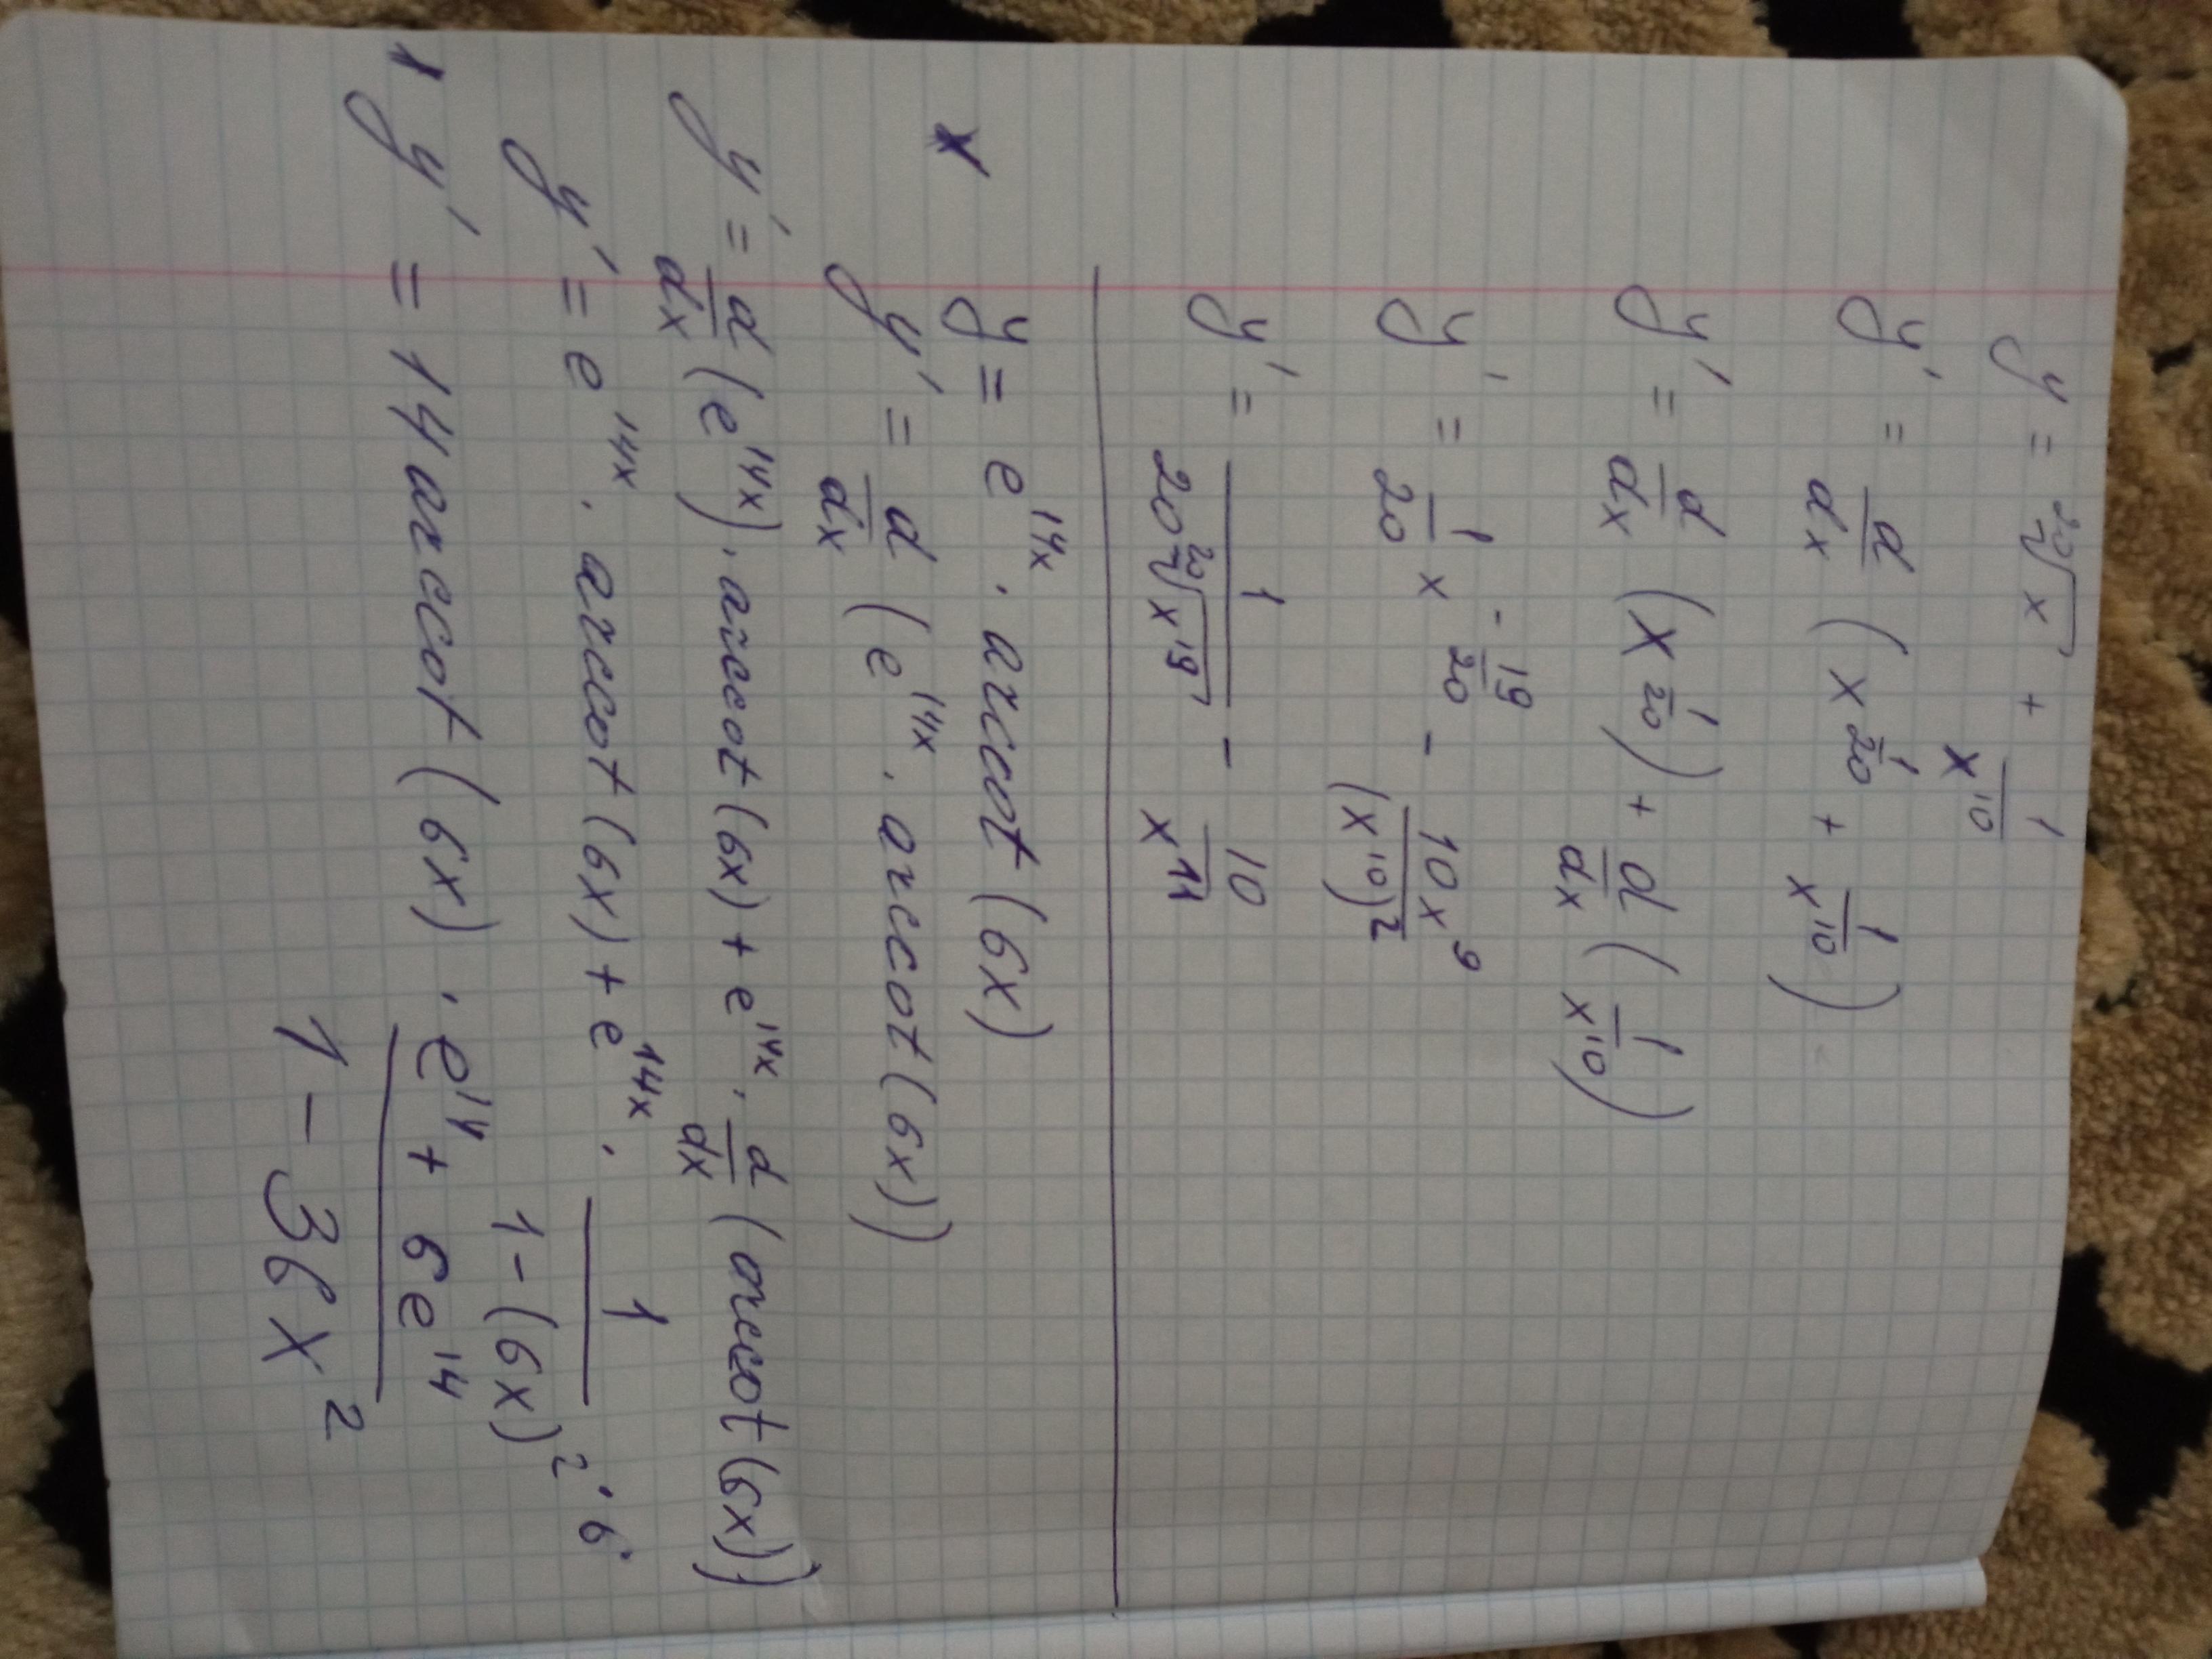 y = ²⁰√x + 1/x¹⁰
y' = d/dx (x^(1/20) + 1/x¹⁰)
y' = d/dx (x^(1/20)) + d/dx (1/x¹⁰)
y' = 1/20 x^(-19/20) - 10x⁹/(x¹⁰)²
y' = 1/(20 ²⁰√x¹⁹) - 10/x¹¹
y = e^(14x) · arccot(6x)
y' = d/dx (e^(14x) · arccot(6x))
y' = d/dx (e^(14x)) · arccot(6x) + e^(14x) · d/dx (arccot(6x))
y' = e^(14x) · arccot(6x) + e^(14x) · 1/(1-(6x)²) · 6
y' = 14 arccot(6x) · (e¹⁴ + 6e¹⁴)/(1 - 36x²)